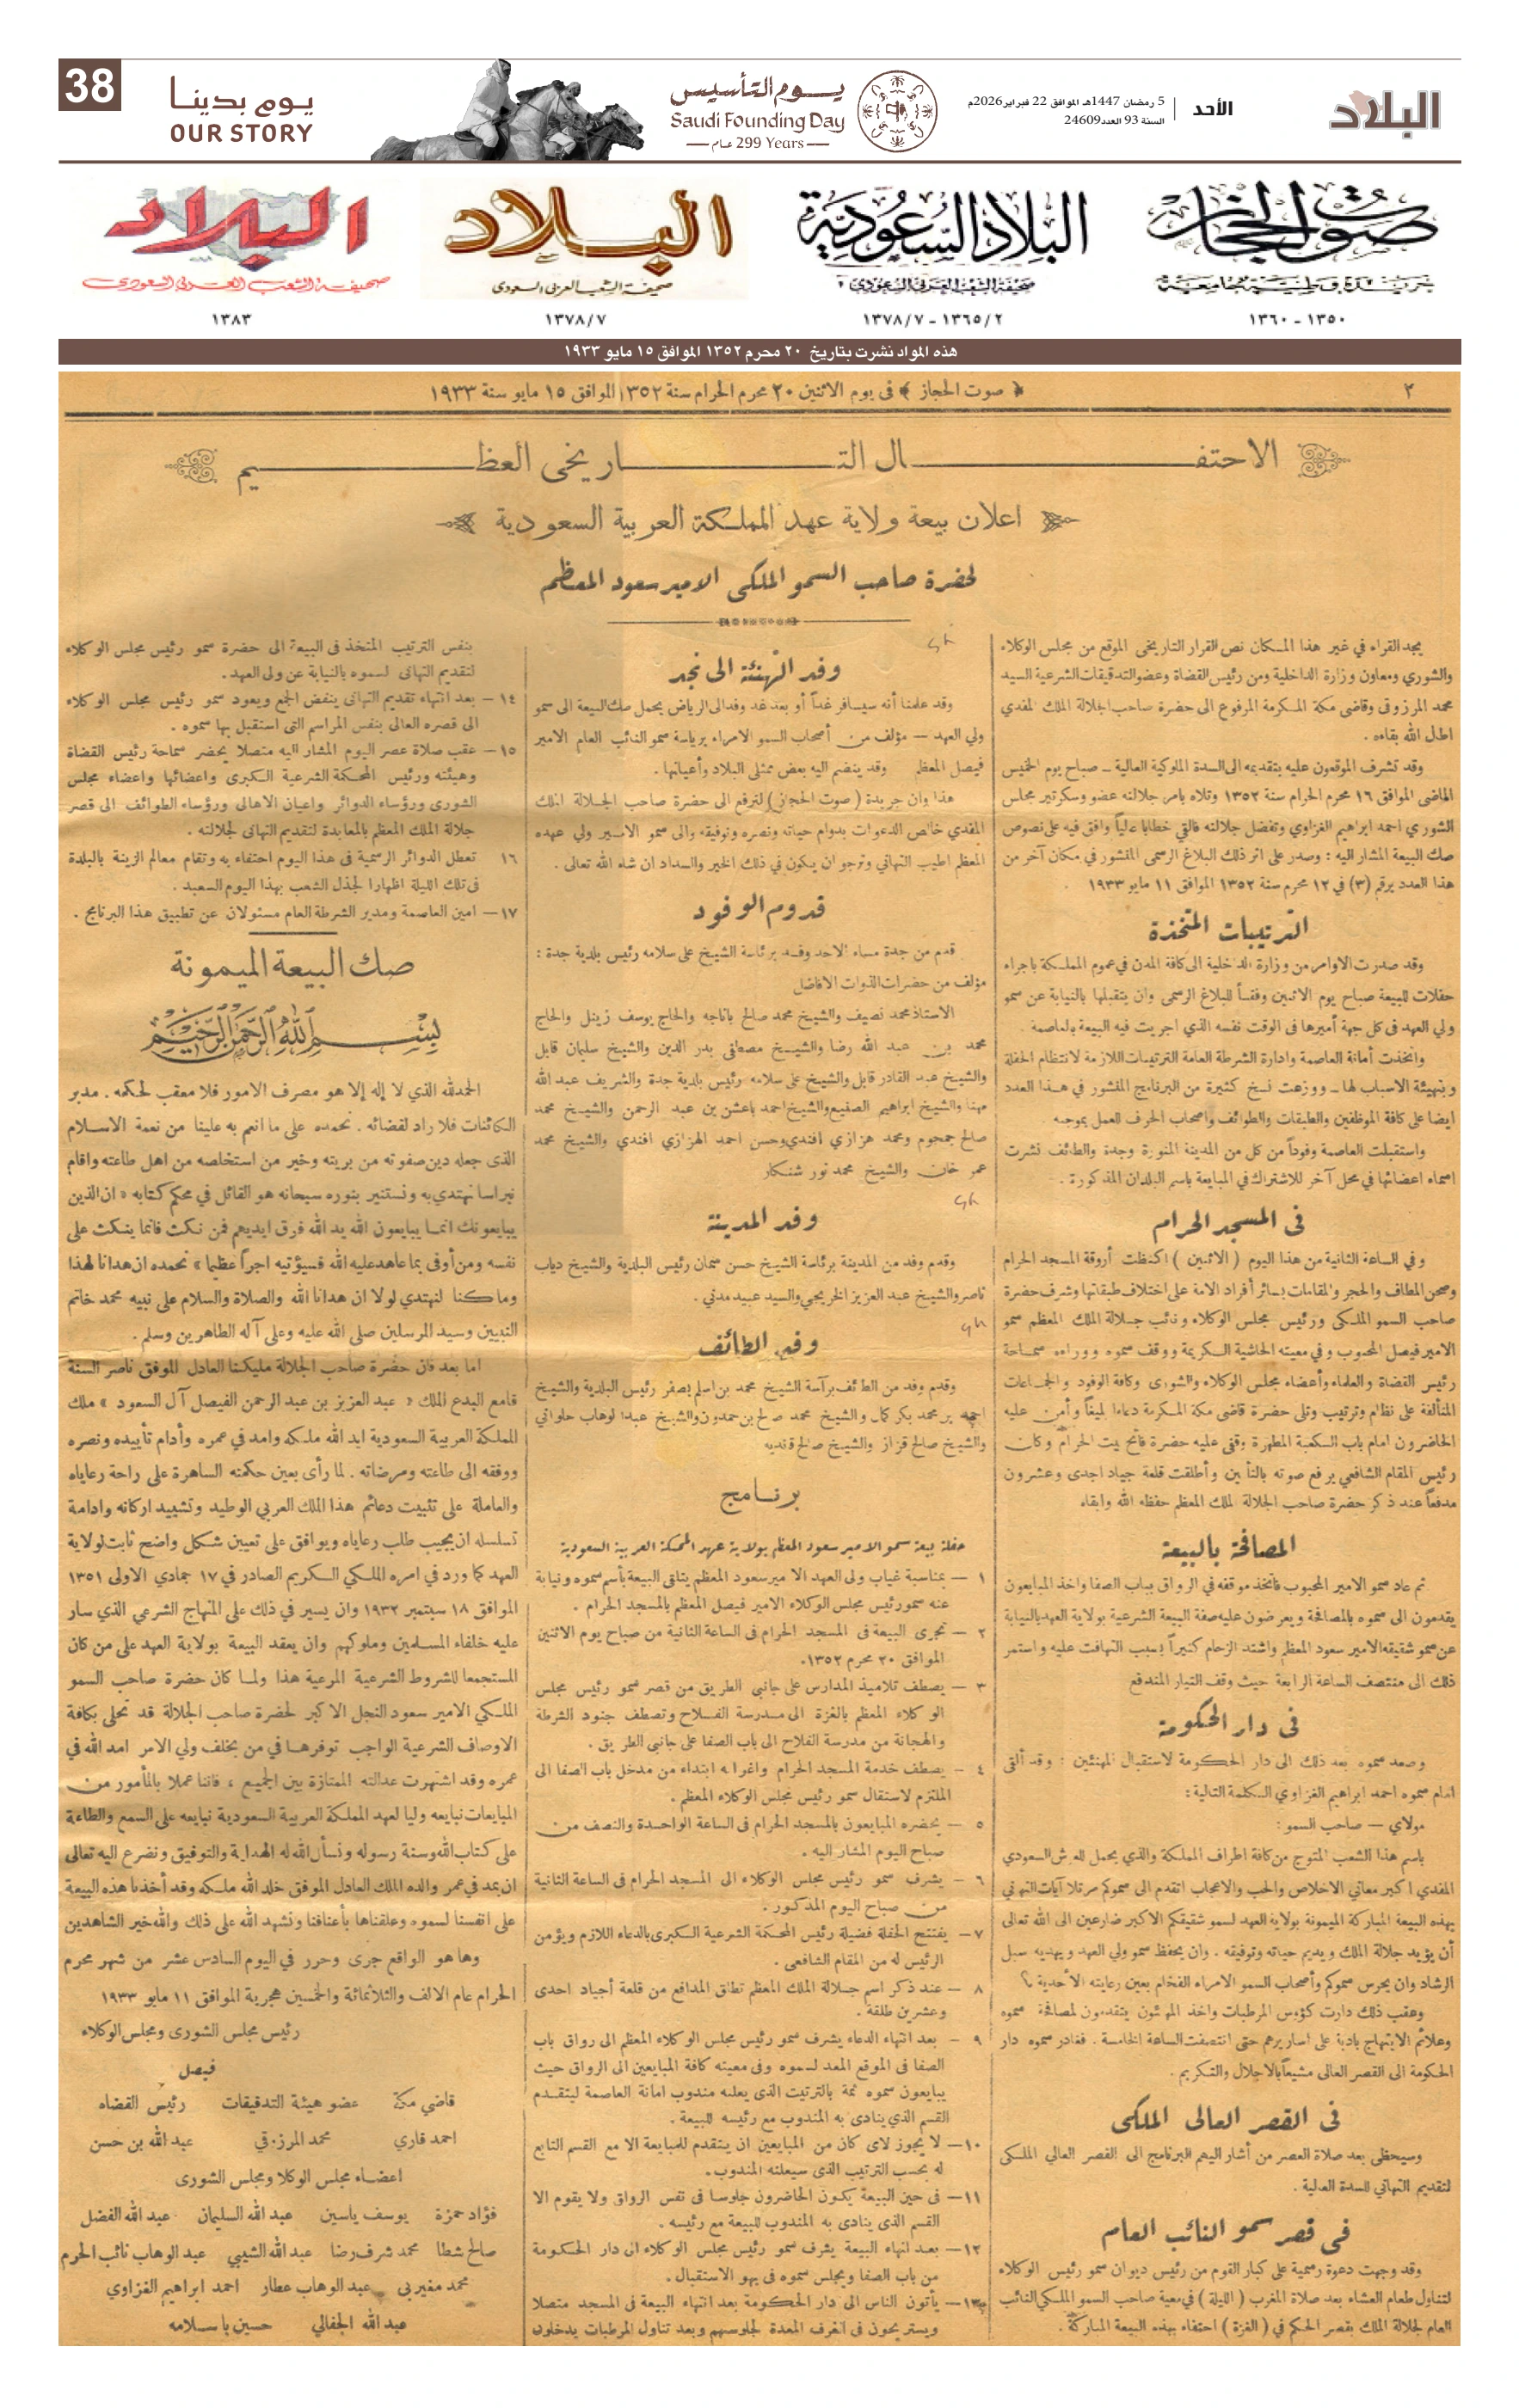 البلاد
الأحد
5 رمضان 1447هـ الموافق 22 فبراير 2026م
السنة 93 العدد 24609
يوم التأسيس
Saudi Founding Day
299 Years عام
يوم بدينا
OUR STORY
38
صوت الحجاز
جريدة وطنية جامعة
١٣٥٠ - ١٣٦٠
البلاد السعودية
صحيفة الشعب العربى السعودى
١٣٦٥/٢ - ١٣٧٨/٧
البلاد
صحيفة الشعب العربى السعودى
١٣٧٨/٧
البلاد
صحيفة الشعب العربى السعودى
١٣٨٣
هذه المواد نشرت بتاريخ ٢٠ محرم ١٣٥٢ الموافق ١٥ مايو ١٩٣٣
٢
﴿ صوت الحجاز ﴾ فى يوم الاثنين ٢٠ محرم الحرام سنة ١٣٥٢ الموافق ١٥ مايو سنة ١٩٣٣
الاحتفال التاريخى العظيم
اعلان بيعة ولاية عهد المملكة العربية السعودية
لحضرة صاحب السمو الملكى الامير سعود المعظم
يجد القراء في غير هذا المكان نص القرار التاريخى الموقع من مجلس الوكلاء
والشوري ومعاون وزارة الداخلية ومن رئيس القضاة وعضو التدقيقات الشرعية السيد
محمد المرزوقى وقاضي مكة المكرمة المرفوع الى حضرة صاحب الجلالة الملك المفدي
اطال الله بقاءه .
وقد تشرف الموقعون عليه بتقديمه الى السدة الملوكية العالية — صباح يوم الخميس
الماضى الموافق ١٦ محرم الحرام سنة ١٣٥٢ وتلاه بامر جلالته عضو وسكرتير مجلس
الشوري احمد ابراهيم الغزاوي وتفضل جلالته فالقي خطابا عالياً وافق فيه على نصوص
صك البيعة المشار اليه : وصدر على اثر ذلك البلاغ الرسمى المنشور في مكان آخر من
هذا العدد برقم (٣) في ١٢ محرم سنة ١٣٥٢ الموافق ١١ مايو ١٩٣٣ .
الترتيبات المتخذة
وقد صدرت الاوامر من وزارة الداخلية الى كافة المدن في عموم المملكة باجراء
حفلات للبيعة صباح يوم الاثنين وفقاً للبلاغ الرسمى وان يتقبلها بالنيابة عن سمو
ولي العهد فى كل جهة أميرها فى الوقت نفسه الذي اجريت فيه البيعة بالعاصمة .
واتخذت أمانة العاصمة وادارة الشرطة العامة الترتيبات اللازمة لانتظام الحفلة
وبتهيئة الاسباب لها — ووزعت نسخ كثيرة من البرنامج المنشور في هذا العدد
ايضا على كافة الموظفين والطبقات والطوائف واصحاب الحرف للعمل بموجبه
واستقبلت العاصمة وفوداً من كل من المدينة المنورة وجدة والطائف نشرت
اسماء اعضائها في محل آخر للاشتراك في المبايعة باسم البلدان المذكورة .
فى المسجد الحرام
وفي الساعة الثانية من هذا اليوم ( الاثنين ) اكتظت أروقة المسجد الحرام
وصحن المطاف والحجر والمقامات بسائر أفراد الامة على اختلاف طبقاتها وشرف حضرة
صاحب السمو الملكى ورئيس مجلس الوكلاء ونائب جلالة الملك المعظم سمو
الامير فيصل المحبوب وفي معيته الحاشية الكريمة ووقف سموه ووراءه سماحة
رئيس القضاة والعلماء وأعضاء مجلس الوكلاء والشورى وكافة الوفود والجماعات
المتألفة على نظام وترتيب وتلى حضرة قاضى مكة المكرمة دعاءا بليغاً وأمن عليه
الحاضرون امام باب الكعبة المطهرة وقفى عليه حضرة فاتح بيت الحرام وكان
رئيس المقام الشافعي يرفع صوته بالتأمين وأطلقت قلعة جياد احدى وعشرون
مدفعاً عند ذكر حضرة صاحب الجلالة الملك المعظم حفظه الله وابقاه
المصافحة بالبيعة
ثم عاد سمو الامير المحبوب فاتخذ موقفه في الرواق بباب الصفا واخذ المبايعون
يقدمون الى سموه بالمصافحة ويعرضون عليه صفة البيعة الشرعية بولاية العهد بالنيابة
عن سمو شقيقه الامير سعود المعظم واشتد الزحام كثيراً بسبب التهافت عليه واستمر
ذلك الى منتصف الساعة الرابعة حيث وقف التيار المندفع
فى دار الحكومة
وصعد سموه بعد ذلك الى دار الحكومة لاستقبال المهنئين : وقد ألقى
امام سموه احمد ابراهيم الغزاوي الكلمة التالية :
مولاي — صاحب السمو :
باسم هذا الشعب المتوج من كافة اطراف المملكة والذي يحمل للعرش السعودي
المفدي اكبر معاني الاخلاص والحب والاعجاب اتقدم الى سموكم مرتلا آيات التهاني
بهذه البيعة المباركة الميمونة بولاية العهد لسمو شقيقكم الاكبر ضارعين الى الله تعالى
أن يؤيد جلالة الملك ويديم حياته وتوفيقه . وان يحفظ سمو ولي العهد ويهديه سبل
الرشاد وان يحرس سموكم وأصحاب السمو الامراء الفخام بعين رعايته الأحدية ؟
وعقب ذلك دارت كؤس المرطبات واخذ المهنئون يتقدمون لمصافحة سموه
وعلائم الابتهاج بادية على اساريرهم حتى انتصفت الساعة الخامسة . فغادر سموه دار
الحكومة الى القصر العالى مشيعاً بالاجلال والتكريم .
فى القصر العالى الملكى
وسيحظى بعد صلاة العصر من أشار اليهم البرنامج الى القصر العالي الملكى
لتقديم التهاني للسدة العالية .
فى قصر سمو النائب العام
وقد وجهت دعوة رسمية على كبار القوم من رئيس ديوان سمو رئيس الوكلاء
لتناول طعام العشاء بعد صلاة المغرب ( الليلة ) في معية صاحب السمو الملكي النائب
العام لجلالة الملك بقصر الحكم في ( الغزة ) احتفاء بهذه البيعة المباركة .
وفد التهنئة الى نجد
وقد علمنا أنه سيسافر غداً أو بعد غد وفد الى الرياض يحمل صك البيعة الى سمو
ولي العهد — مؤلف من أصحاب السمو الامراء برياسة سمو النائب العام الامير
فيصل المعظم وقد ينضم اليه بعض ممثلي البلاد وأعيانها .
هذا وان جريدة ( صوت الحجاز ) لترفع الى حضرة صاحب الجلالة الملك
المفدي خالص الدعوات بدوام حياته ونصره وتوفيقه والى سمو الامير ولي عهده
المعظم اطيب التهاني وترجو ان يكون في ذلك الخير والسداد ان شاء الله تعالى .
قدوم الوفود
قدم من جدة مساء الاحد وفد برئاسة الشيخ على سلامه رئيس بلدية جدة :
مؤلف من حضرات الذوات الافاضل
الاستاذ محمد نصيف والشيخ محمد صالح باناجه والحاج يوسف زينل والحاج
محمد بن عبد الله رضا والشيخ مصطفى بدر الدين والشيخ سليمان قابل
والشيخ عبد القادر قابل والشيخ على سلامه رئيس بلدية جدة والشريف عبد الله
مهنا والشيخ ابراهيم الصنيع والشيخ احمد باعشن بن عبد الرحمن والشيخ محمد
صالح جمجوم ومحمد هزازي افندي وحسن احمد الهزازي افندي والشيخ محمد
عمر خان والشيخ محمد نور شنكار
وفد المدينة
وقدم وفد من المدينة برئاسة الشيخ حسن سمان رئيس البلدية والشيخ دياب
ناصر والشيخ عبد العزيز الخريجي والسيد عبيد مدني .
وفد الطائف
وقدم وفد من الطائف برآسة الشيخ محمد بن اسلم بصفر رئيس البلدية والشيخ
احمد بن محمد بكر كمال والشيخ محمد صالح بن حمدون والشيخ عبد الوهاب حلواني
والشيخ صالح قزاز والشيخ صالح قنديه
برنامج
حفلة بيعة سمو الامير سعود المعظم بولاية عهد المملكة العربية السعودية
١ — بمناسبة غياب ولى العهد الامير سعود المعظم يتلقى البيعة بأسم سموه ونيابة
عنه سمو رئيس مجلس الوكلاء الامير فيصل المعظم بالمسجد الحرام .
٢ — تجري البيعة فى المسجد الحرام فى الساعة الثانية من صباح يوم الاثنين
الموافق ٢٠ محرم ١٣٥٢.
٣ — يصطف تلاميذ المدارس على جانبي الطريق من قصر سمو رئيس مجلس
الوكلاء المعظم بالغزة الى مدرسة الفلاح وتصطف جنود الشرطة
والهجانة من مدرسة الفلاح الى باب الصفا على جانبي الطريق .
٤ — يصطف خدمة المسجد الحرام واغواته ابتداء من مدخل باب الصفا الى
الملتزم لاستقبال سمو رئيس مجلس الوكلاء المعظم .
٥ — يحضره المبايعون بالمسجد الحرام فى الساعة الواحدة والنصف من
صباح اليوم المشار اليه .
٦ — يشرف سمو رئيس مجلس الوكلاء الى المسجد الحرام فى الساعة الثانية
من صباح اليوم المذكور .
٧ — يفتتح الحفلة فضيلة رئيس المحكمة الشرعية الكبرى بالدعاء اللازم ويؤمن
الرئيس له من المقام الشافعي .
٨ — عند ذكر اسم جلالة الملك المعظم تطلق المدافع من قلعة أجياد احدى
وعشرين طلقة .
٩ — بعد انتهاء الدعاء يشرف سمو رئيس مجلس الوكلاء المعظم الى رواق باب
الصفا فى الموقع المعد لسموه وفى معيته كافة المبايعين الى الرواق حيث
يبايعون سموه ثمة بالترتيب الذى يعلنه مندوب امانة العاصمة ليتقدم
القسم الذي ينادى به المندوب مع رئيسه للبيعة .
١٠— لا يجوز لاى كان من المبايعين ان يتقدم للمبايعة الا مع القسم التابع
له بحسب الترتيب الذى سيعلنه المندوب.
١١— فى حين البيعة يكون الحاضرون جلوسا فى نفس الرواق ولا يقوم الا
القسم الذى ينادى به المندوب للبيعة مع رئيسه .
١٢— بعد انتهاء البيعة يشرف سمو رئيس مجلس الوكلاء الى دار الحكومة
من باب الصفا ويجلس سموه فى بهو الاستقبال .
١٣— يأتون الناس الى دار الحكومة بعد انتهاء البيعة فى المسجد متصلا
ويستريحون فى الغرف المعدة لجلوسهم وبعد تناول المرطبات يدخلون
بنفس الترتيب المتخذ فى البيعة الى حضرة سمو رئيس مجلس الوكلاء
لتقديم التهانى لسموه بالنيابة عن ولى العهد .
١٤ — بعد انتهاء تقديم التهانى ينفض الجمع ويعود سمو رئيس مجلس الوكلاء
الى قصره العالى بنفس المراسم التى استقبل بها سموه .
١٥ — عقب صلاة عصر اليوم المشار اليه متصلا يحضر سماحة رئيس القضاة
وهيئته ورئيس المحكمة الشرعية الكبرى واعضائها واعضاء مجلس
الشورى ورؤساء الدوائر واعيان الاهالى ورؤساء الطوائف الى قصر
جلالة الملك المعظم بالمعابدة لتقديم التهانى لجلالته .
١٦ تعطل الدوائر الرسمية فى هذا اليوم احتفاء به وتقام معالم الزينة بالبلدة
فى تلك الليلة اظهارا لجذل الشعب بهذا اليوم السعيد .
١٧— امين العاصمة ومدير الشرطة العام مسئولان عن تطبيق هذا البرنامج .
صك البيعة الميمونة
بسم الله الرحمن الرحيم
الحمد لله الذي لا إله إلا هو مصرف الامور فلا معقب لحكمه . مدبر
الكائنات فلا راد لقضائه . نحمده على ما انعم به علينا من نعمة الاسلام
الذى جعله دين صفوته من بريته وخير من استخلصه من اهل طاعته واقام
نبراسا نهتدي به ونستنير بنوره سبحانه هو القائل في محكم كتابه « ان الذين
يبايعونك انما يبايعون الله يد الله فوق ايديهم فمن نكث فانما ينكث على
نفسه ومن أوفى بما عاهد عليه الله فسيؤتيه اجراً عظيما » نحمده ان هدانا لهذا
وما كنا لنهتدي لولا ان هدانا الله والصلاة والسلام على نبيه محمد خاتم
النبيين وسيد المرسلين صلى الله عليه وعلى آله الطاهرين وسلم .
اما بعد فان حضرة صاحب الجلالة مليكنا العادل الموفق ناصر السنة
قامع البدع الملك « عبد العزيز بن عبد الرحمن الفيصل آل السعود » ملك
المملكة العربية السعودية ايد الله ملكه وامد في عمره وأدام تأييده ونصره
ووفقه الى طاعته ومرضاته . لما رأى بعين حكمته الساهرة على راحة رعاياه
والعاملة على تثبيت دعائم هذا الملك العربي الوطيد وتشييد اركانه وادامة
تسلسله ان يجيب طلب رعاياه ويوافق على تعيين شكل واضح ثابت لولاية
العهد كما ورد في امره الملكي الكريم الصادر في ١٧ جمادي الاولى ١٣٥١
الموافق ١٨ سبتمبر ١٩٣٢ وان يسير في ذلك على المنهاج الشرعي الذي سار
عليه خلفاء المسلمين وملوكهم وان يعقد البيعة بولاية العهد على من كان
مستجمعا للشروط الشرعية المرعية هذا ولما كان حضرة صاحب السمو
الملكي الامير سعود النجل الاكبر لحضرة صاحب الجلالة قد تحلى بكافة
الاوصاف الشرعية الواجب توفرها في من يخلف ولي الامر امد الله في
عمره وقد اشتهرت عدالته الممتازة بين الجميع ، فاننا عملا بالمأمور من
المبايعات نبايعه وليا لعهد المملكة العربية السعودية نبايعه على السمع والطاعة
على كتاب الله وسنة رسوله ونسأل الله له الهداية والتوفيق ونضرع اليه تعالى
ان يمد في عمر والده الملك العادل الموفق خلد الله ملكه وقد أخذنا هذه البيعة
على انفسنا لسموه وعلقناها بأعناقنا ونشهد الله على ذلك والله خير الشاهدين
وها هو الواقع جرى وحرر في اليوم السادس عشر من شهر محرم
الحرام عام الالف والثلاثمائة والخمسين هجرية الموافق ١١ مايو ١٩٣٣
رئيس مجلس الشورى ومجلس الوكلاء
فيصل
قاضي مكة عضو هيئة التدقيقات رئيس القضاه
احمد قاري محمد المرزوقي عبد الله بن حسن
اعضاء مجلس الوكلا ومجلس الشورى
فؤاد حمزة يوسف ياسين عبد الله السليمان عبد الله الفضل
صالح شطا محمد شرف رضا عبد الله الشيبي عبد الوهاب نائب الحرم
محمد مغيربي عبد الوهاب عطار احمد ابراهيم الغزاوي
عبد الله الجفالي حسين باسلامه